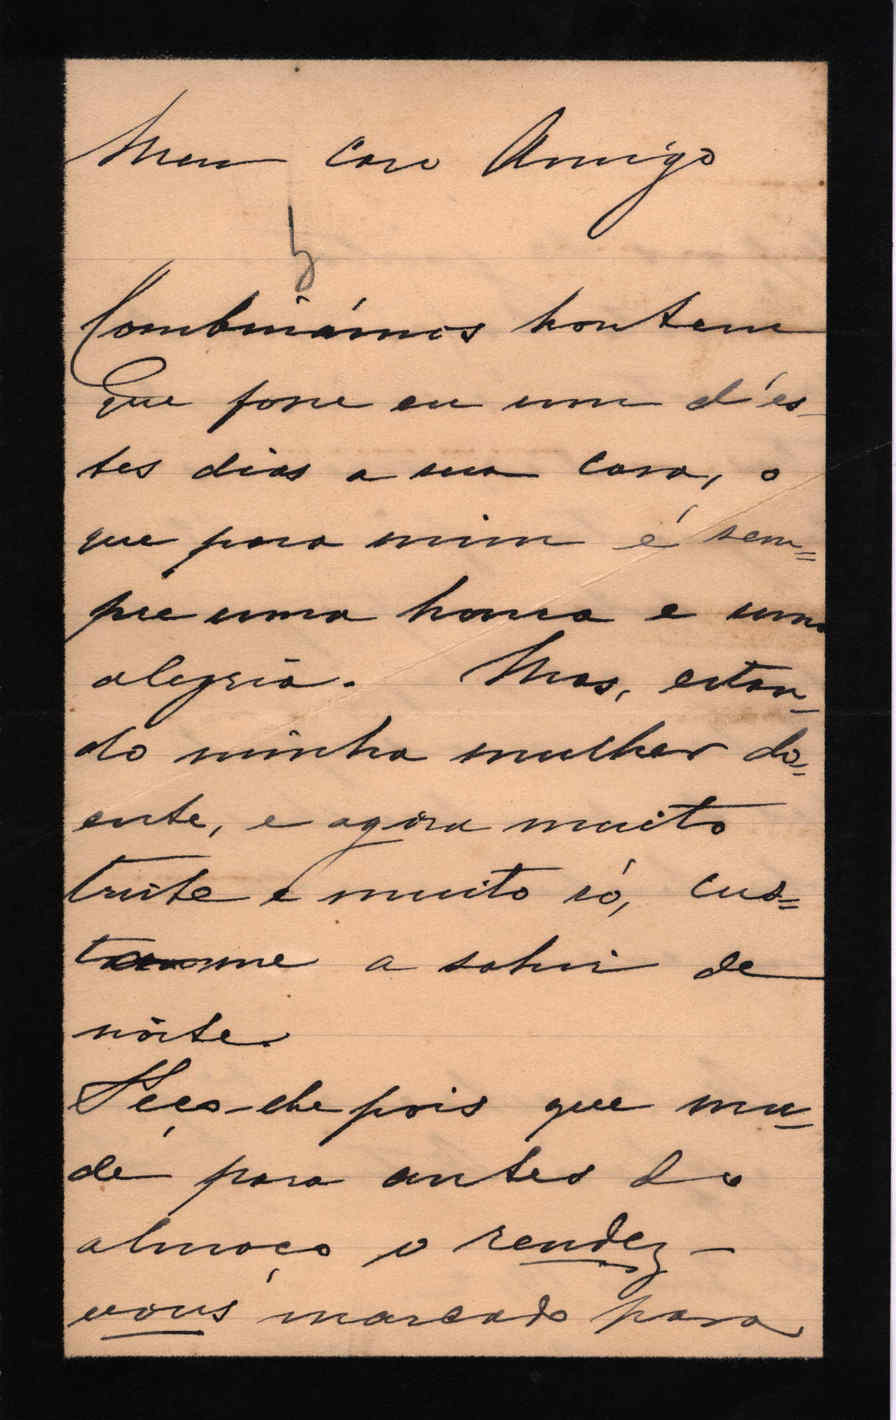 Meu caro Amigo
Combinámos hontem
que fosse eu um d'es-
tes dias a sua casa, o
que para mim é sem=
pre uma honra e uma
alegria. Mas, estan=
do minha mulher do=
ente, e agora muito
triste e muito só, cus=
ta-me a sahir de
noite.
Peço-che pois que mu=
de para antes do
almoço o rendez-
vous marcado para